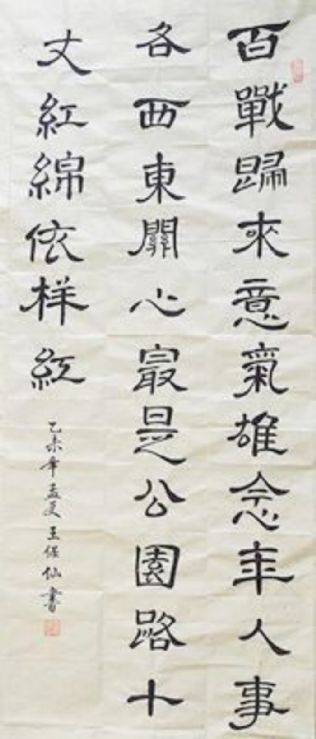 百戰歸來意氣雄念年人事
各西東關心最是公園路十
丈紅綿依样紅
乙未年孟夏王保仙書